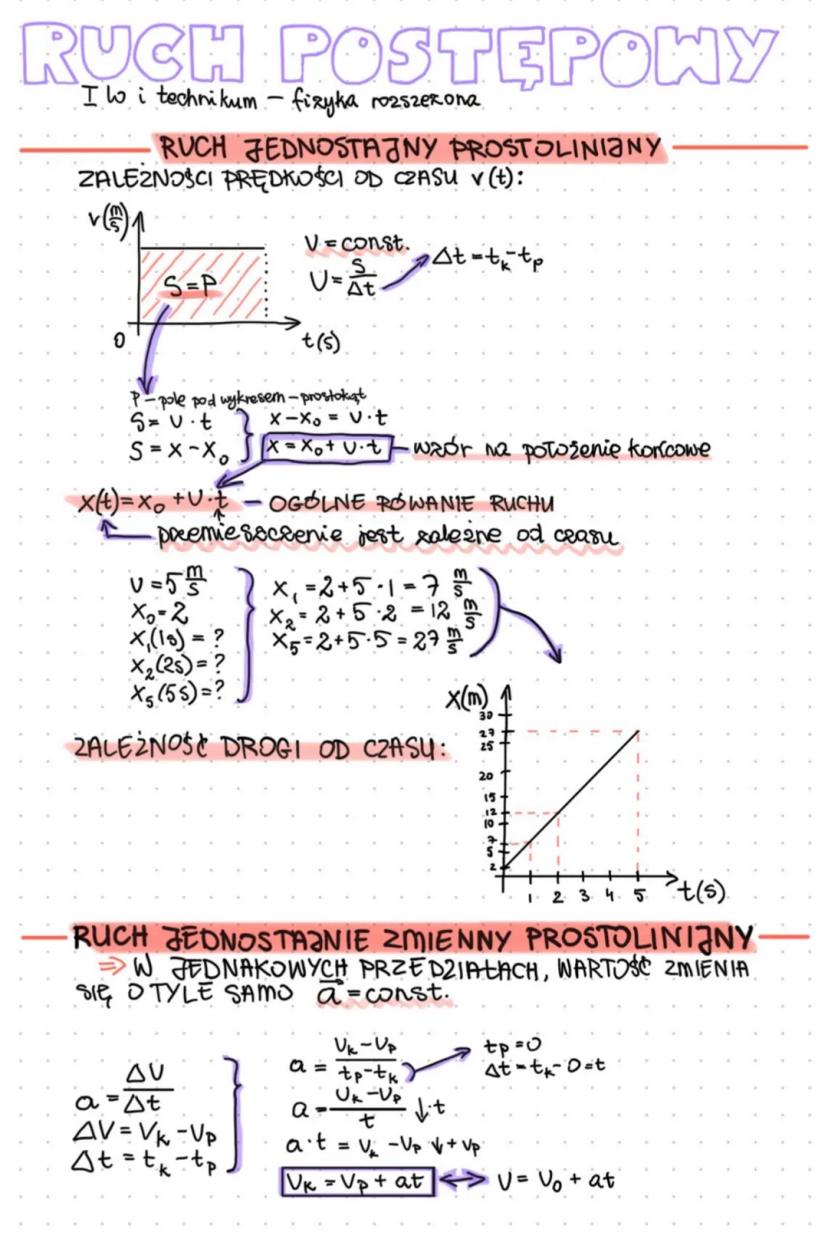 RUCH POSTĘPOWY
I lo i technikum – fizyka rozszerzona
RUCH JEDNOSTAJNY PROSTOLINIJNY
ZALEŻNOŚCI PRĘDKOŚCI OD CZASU v(t):
v(m/s)
S=P
0
t(s)
V = const.
V = S/Δt
Δt = tk - tp
P – pole pod wykresem – prostokąt
S = V · t
S = x - x₀
x - x₀ = V · t
x = x₀ + V · t – wzór na położenie końcowe
x(t) = x₀ + V · t – OGÓLNE RÓWANIE RUCHU
przemiesoczenie jest zależne od czasu
V = 5 m/s
x₀ = 2
x₁(1s) = ?
x₂(2s) = ?
x₅(5s) = ?
x₁ = 2 + 5 · 1 = 7 m/s
x₂ = 2 + 5 · 2 = 12 m/s
x₅ = 2 + 5 · 5 = 27 m/s
ZALEŻNOŚĆ DROGI OD CZASU:
x(m)
30
27
25
20
15
12
10
7
5
2
1 2 3 4 5 t(s)
RUCH JEDNOSTAJNIE ZMIENNY PROSTOLINIJNY
⇒ W JEDNAKOWYCH PRZEDZIAŁACH, WARTOŚĆ ZMIENIA
SIĘ O TYLE SAMO a⃗ = const.
a = ΔV/Δt
ΔV = Vk - Vp
Δt = tk - tp
a = (Vk - Vp)/(tp - tk)
tp = 0
Δt = tk - 0 = t
a = (Vk - Vp)/t ↓· t
a · t = Vk - Vp ↓ + Vp
Vk = Vp + at ↔ V = V₀ + at